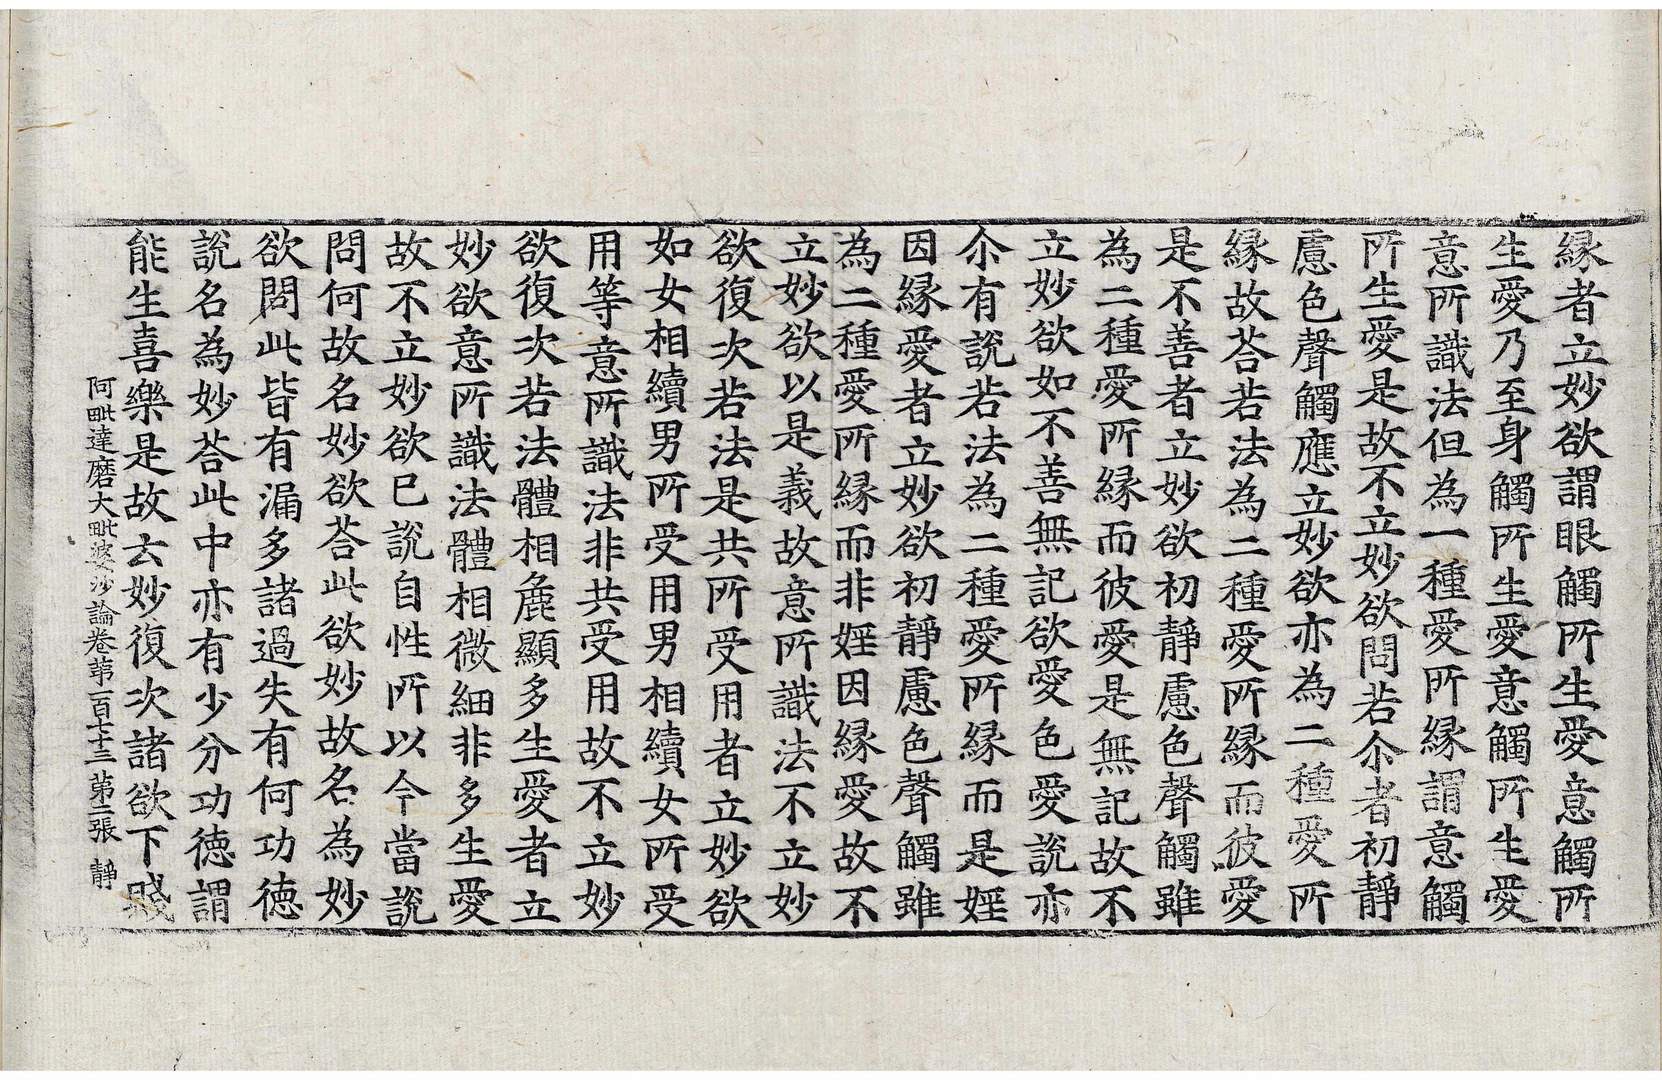 縁者立妙欲謂眼觸所生愛意觸所
生愛乃至身觸所生愛意觸所生愛
意所識法但為一種愛所縁謂意觸
所生愛是故不立妙欲問若尒者初靜
慮色聲觸應立妙欲亦為二種愛所
縁故荅若法為二種愛所縁而彼愛
是不善者立妙欲初靜慮色聲觸雖
為二種愛所縁而彼愛是無記故不
立妙欲如不善無記欲愛色愛說亦
尒有說若法為二種愛所縁而是婬
因縁愛者立妙欲初靜慮色聲觸雖
為二種愛所縁而非婬因縁愛故不
立妙欲以是義故意所識法不立妙
欲復次若法是共所受用者立妙欲
如女相續男所受用男相續女所受
用等意所識法非共受用故不立妙
欲復次若法體相麁顯多生愛者立
妙欲意所識法體相微細非多生愛
故不立妙欲已說自性所以今當說
問何故名妙欲荅此欲妙故名為妙
欲問此皆有漏多諸過失有何功德
說名為妙荅此中亦有少分功德謂
能生喜樂是故云妙復次諸欲下賤
阿毗達磨大毗婆沙論卷苐一百七十三 第二張 靜